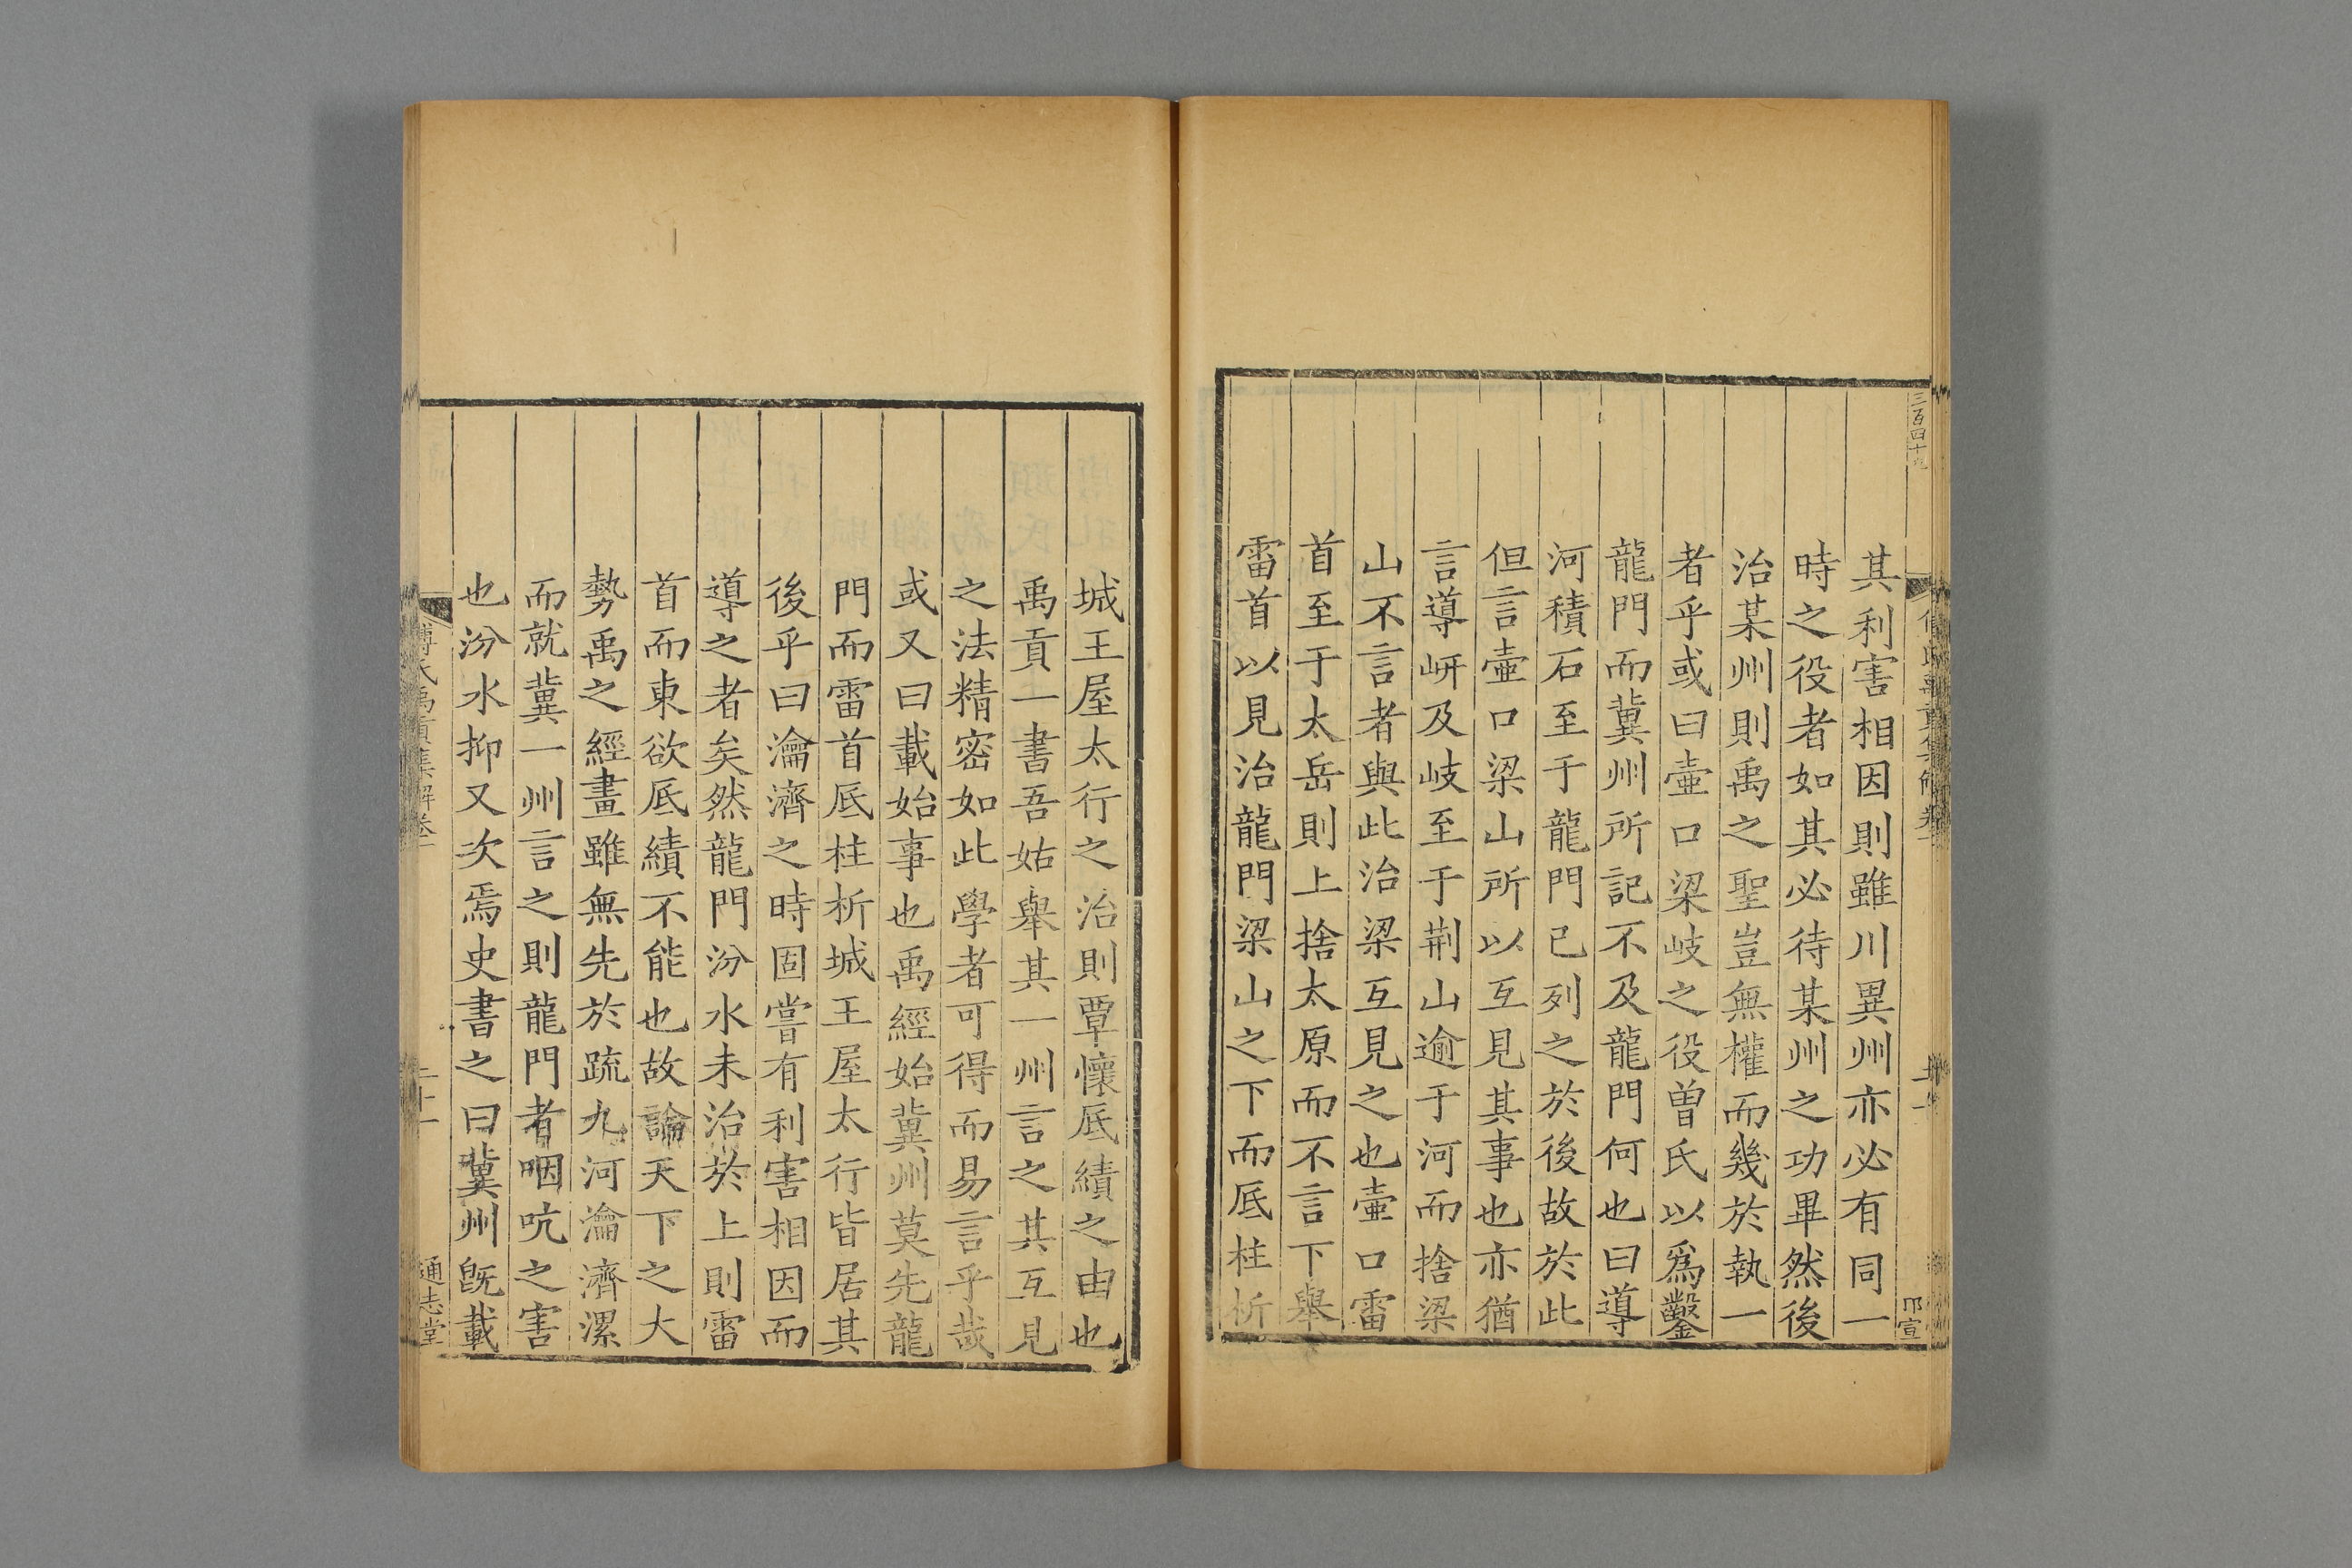 其利害相因則雖川異州亦必有同一
時之役者如其必待某州之功畢然後
治某州則禹之聖豈無權而幾於執一
者乎或曰壺口梁岐之役曾氏以爲鑿
龍門而冀州所記不及龍門何也曰導
河積石至于龍門已列之於後故於此
但言壺口梁山所以互見其事也亦猶
言導岍及岐至于荆山逾于河而捨梁
山不言者與此治梁互見之也壷口雷
首至于太岳則上捨太原而不言下舉
雷首以見治龍門梁山之下而厎柱析
城王屋太行之治則覃懷厎績之由也
禹貢一書吾姑舉其一州言之其互見
之法精密如此學者可得而易言乎哉
或又曰載始事也禹經始冀州莫先龍
門而雷首厎柱析城王屋太行皆居其
後乎曰瀹濟之時固嘗有利害相因而
導之者矣然龍門汾水未治於上則雷
首而東欲厎績不能也故論天下之大
勢禹之經畫雖無先於疏九河瀹濟漯
而就冀一州言之則龍門者咽吭之害
也汾水抑又次焉史書之曰冀州旣載
通志堂